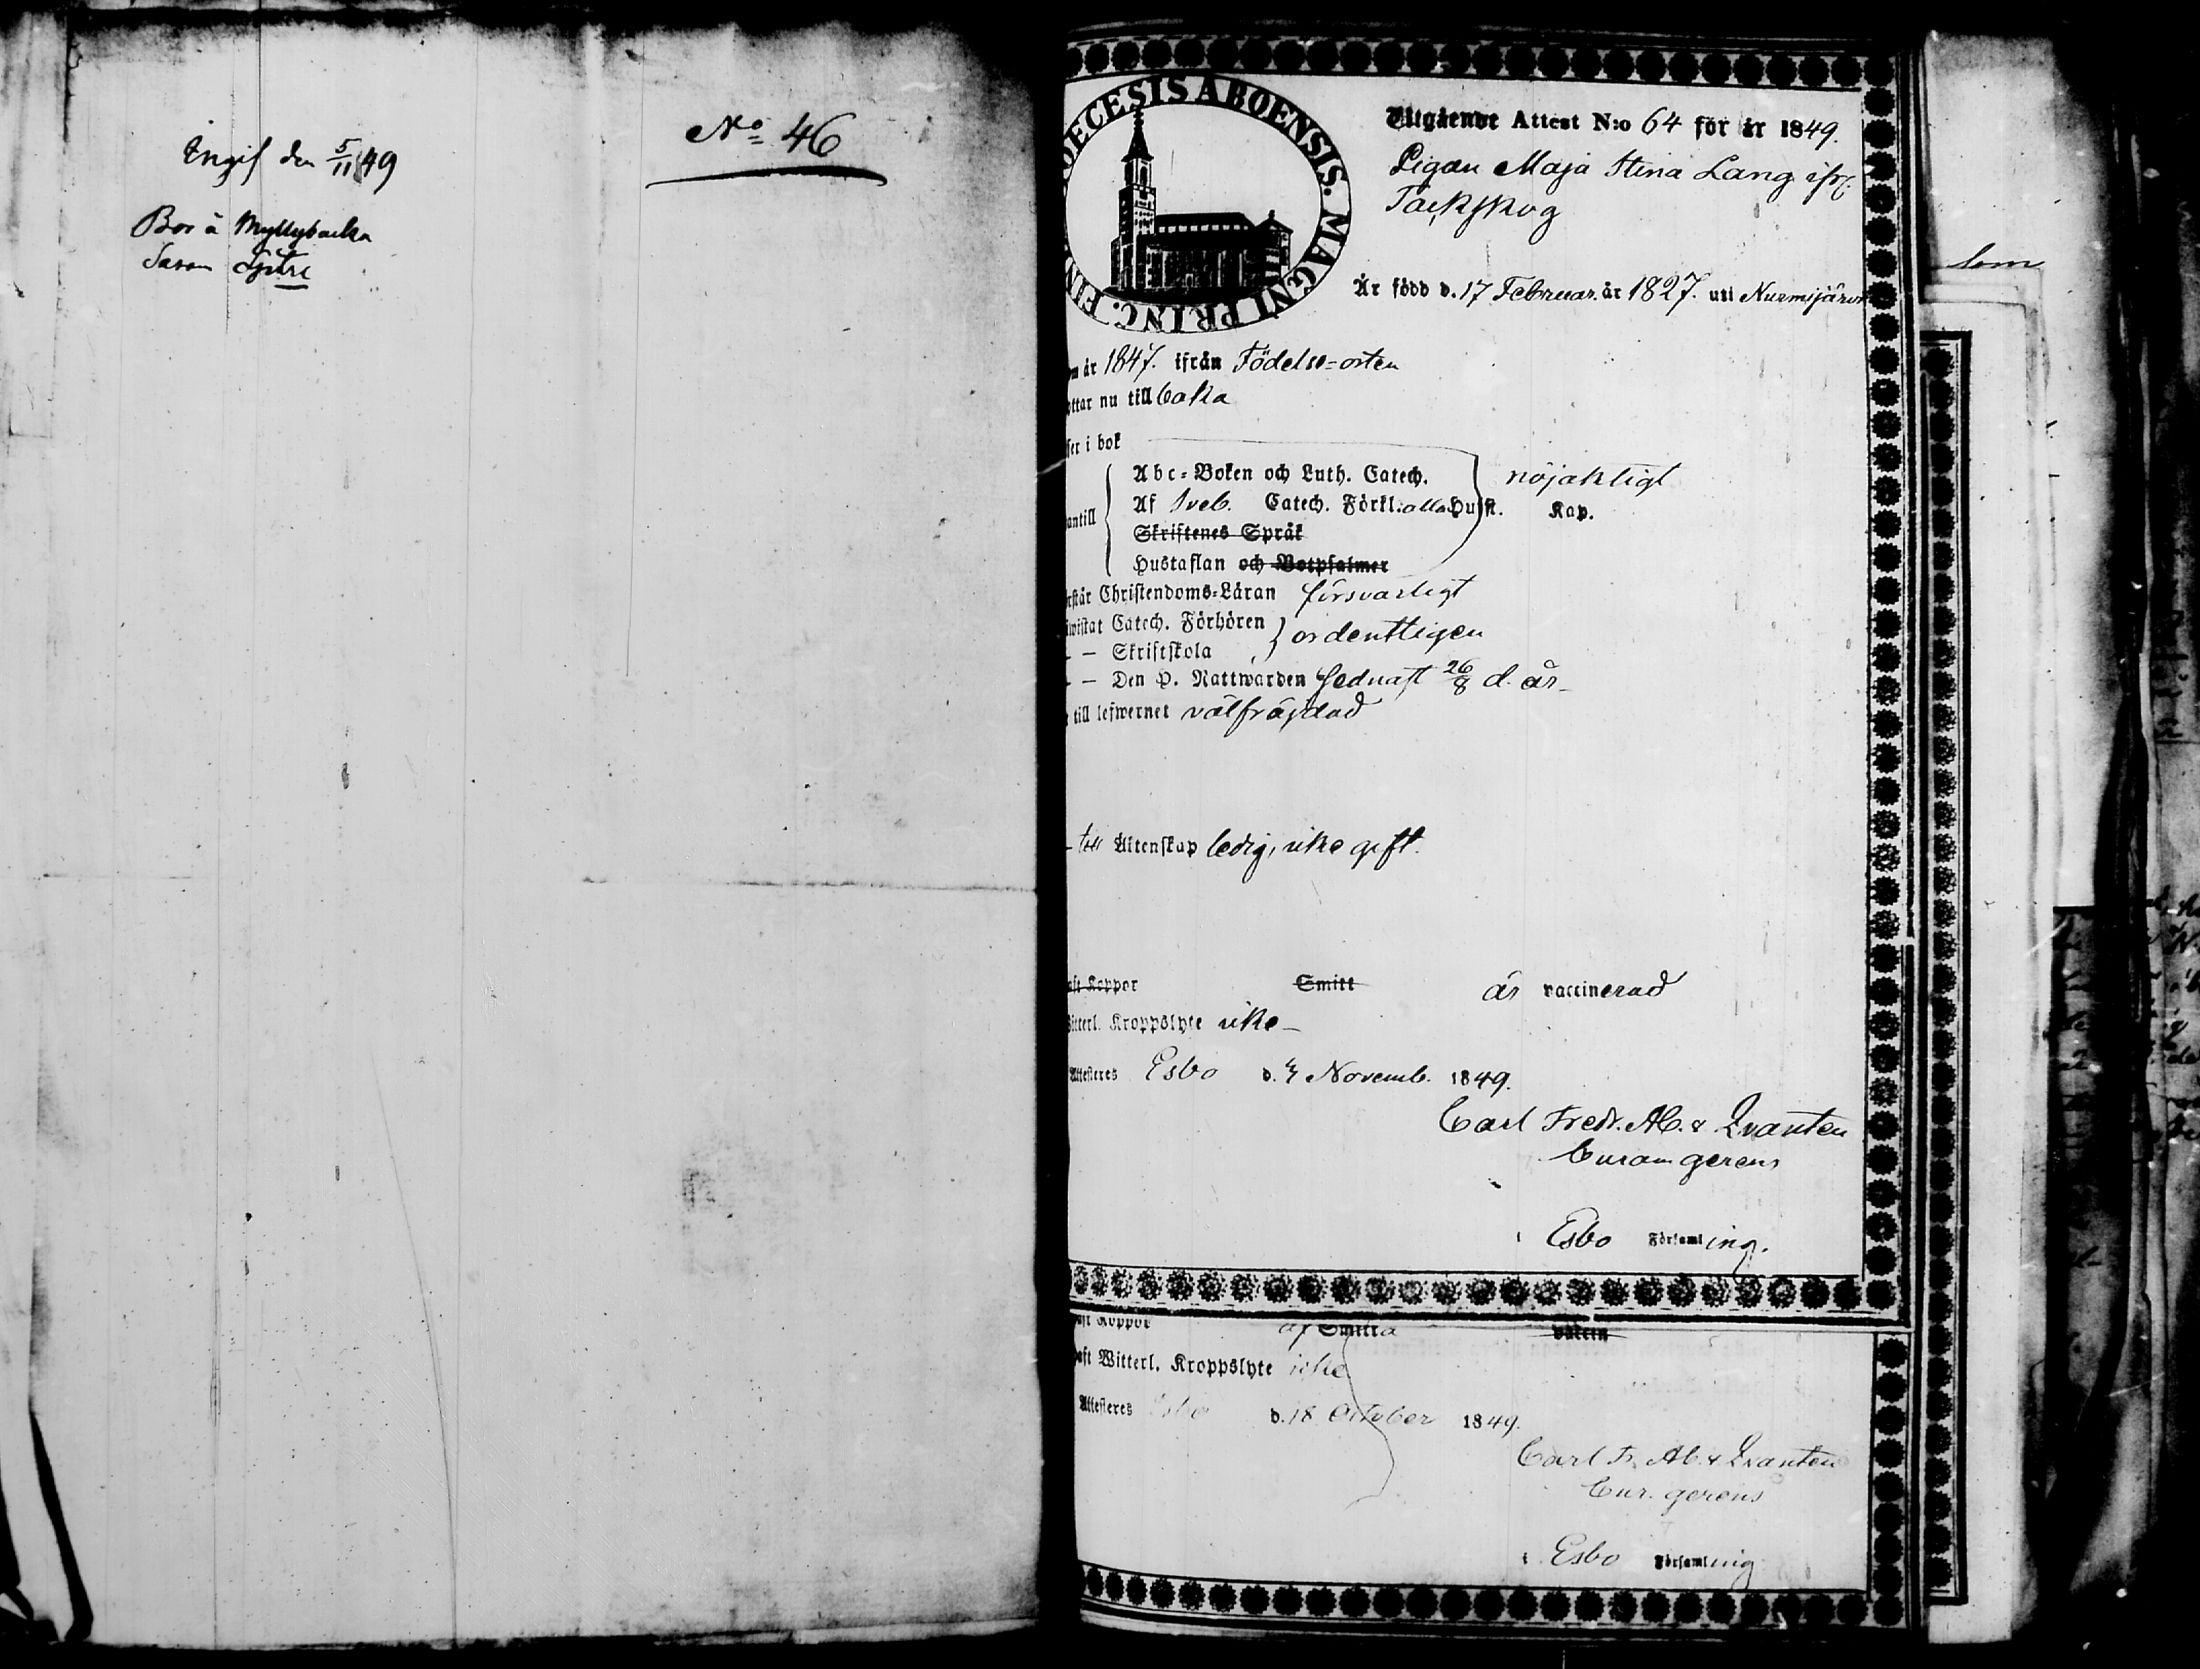 Ingif den 5/11 49
Bor å Myllybacka
N:o 46
DIOECESIS ABOENSIS. MAGNI PRINC. FIN
Utgående Attest N:o 64 för år 1849.
Pigan Maja Stina Lang ifr:
Tackskog
Är född d. 17 Februar. år 1827. uti Nurmijärvi
om år 1847. ifrån Födelse-orten
ottar nu tillbaka
ser i bok
Abc-Boken och Luth. Catech. nöjaktigt
antill Af Sveb. Catech. Förkl: alla Hufst. Kap.
Skriftenes Språk
Hustaflan och Botpsalmer
rstår Christendoms-Läran försvarligt
iwistat Catech. Förhören ordentligen
— Skriftskola
— Den H. Nattwarden sednast 26/8 d. år
till lefwernet välfräjdad
till Äktenskap ledig, icke gift.
aft Koppor Smitt är vaccinerad
Witterl. Kroppslyte icke
Attesteres Esbo d. 4 Novemb. 1849.
Carl Fredr. Ab. v Qvanten
Curam gerens
i Esbo Församling.
aft Koppor af Smitta vaccin
aft Witterl. Kroppslyte icke
Attesteres Esbo d. 18 October 1849.
Carl Fr. Ab. v Qvanten
Cur. gerens
i Esbo Församling
som